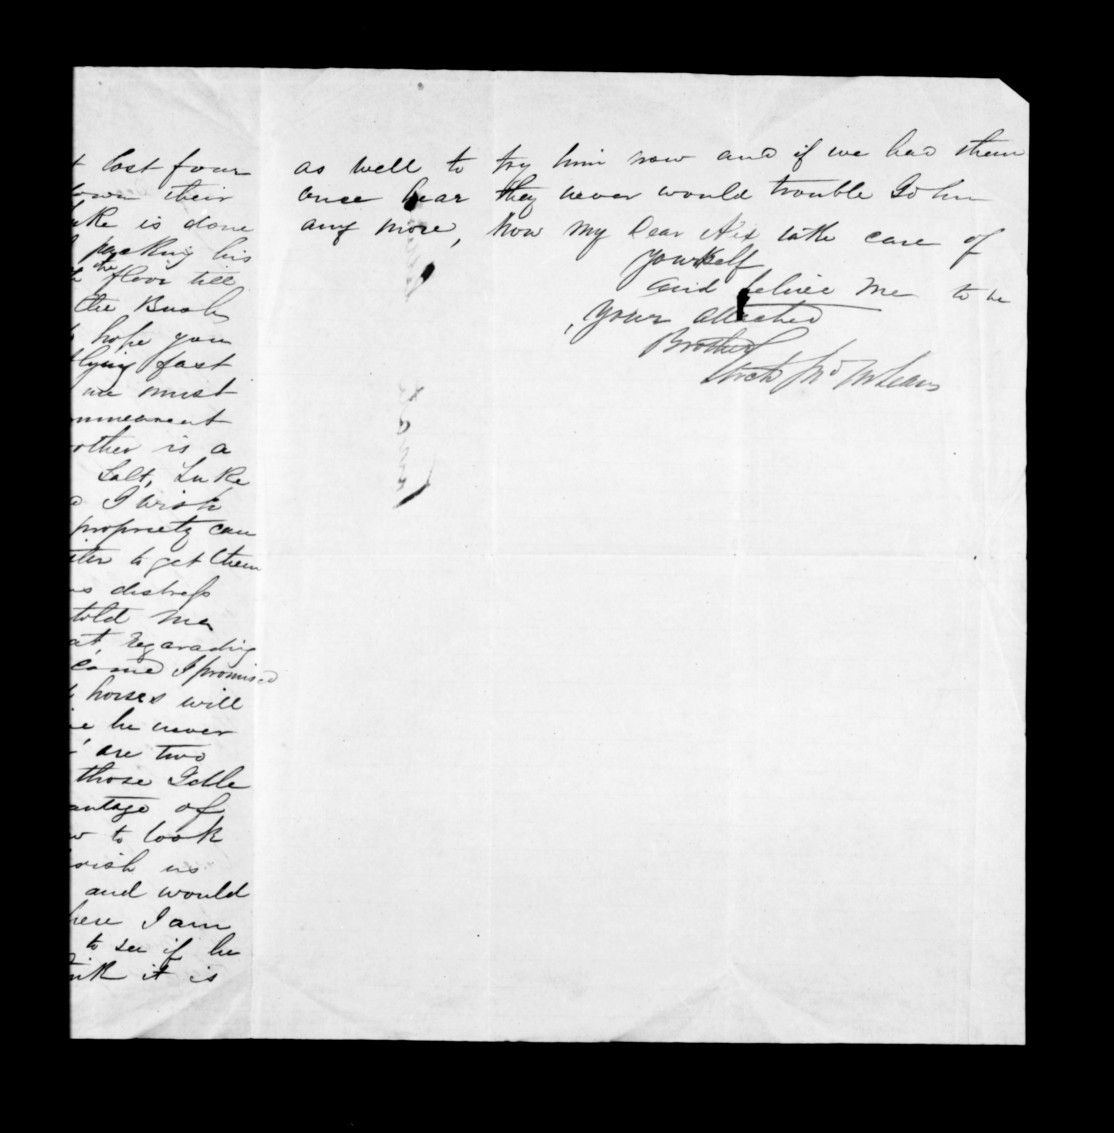 lost four
their
is done
packing his
the
floor till
the Bush
hope you
flying fast
we must
is a
Salt, Luke
I wish
propriety can
to get them
distress
told me
regarading
came I promised
horses will
he never
are two
those
of
to look
us
and would
here I am
to see if he
it is
as well to try him now and if we had them
once hear they never would trouble John
any more, now my Dear Alex take care of
yourself
and beleive me to be
your attached
Brother
Archd Jno McLean